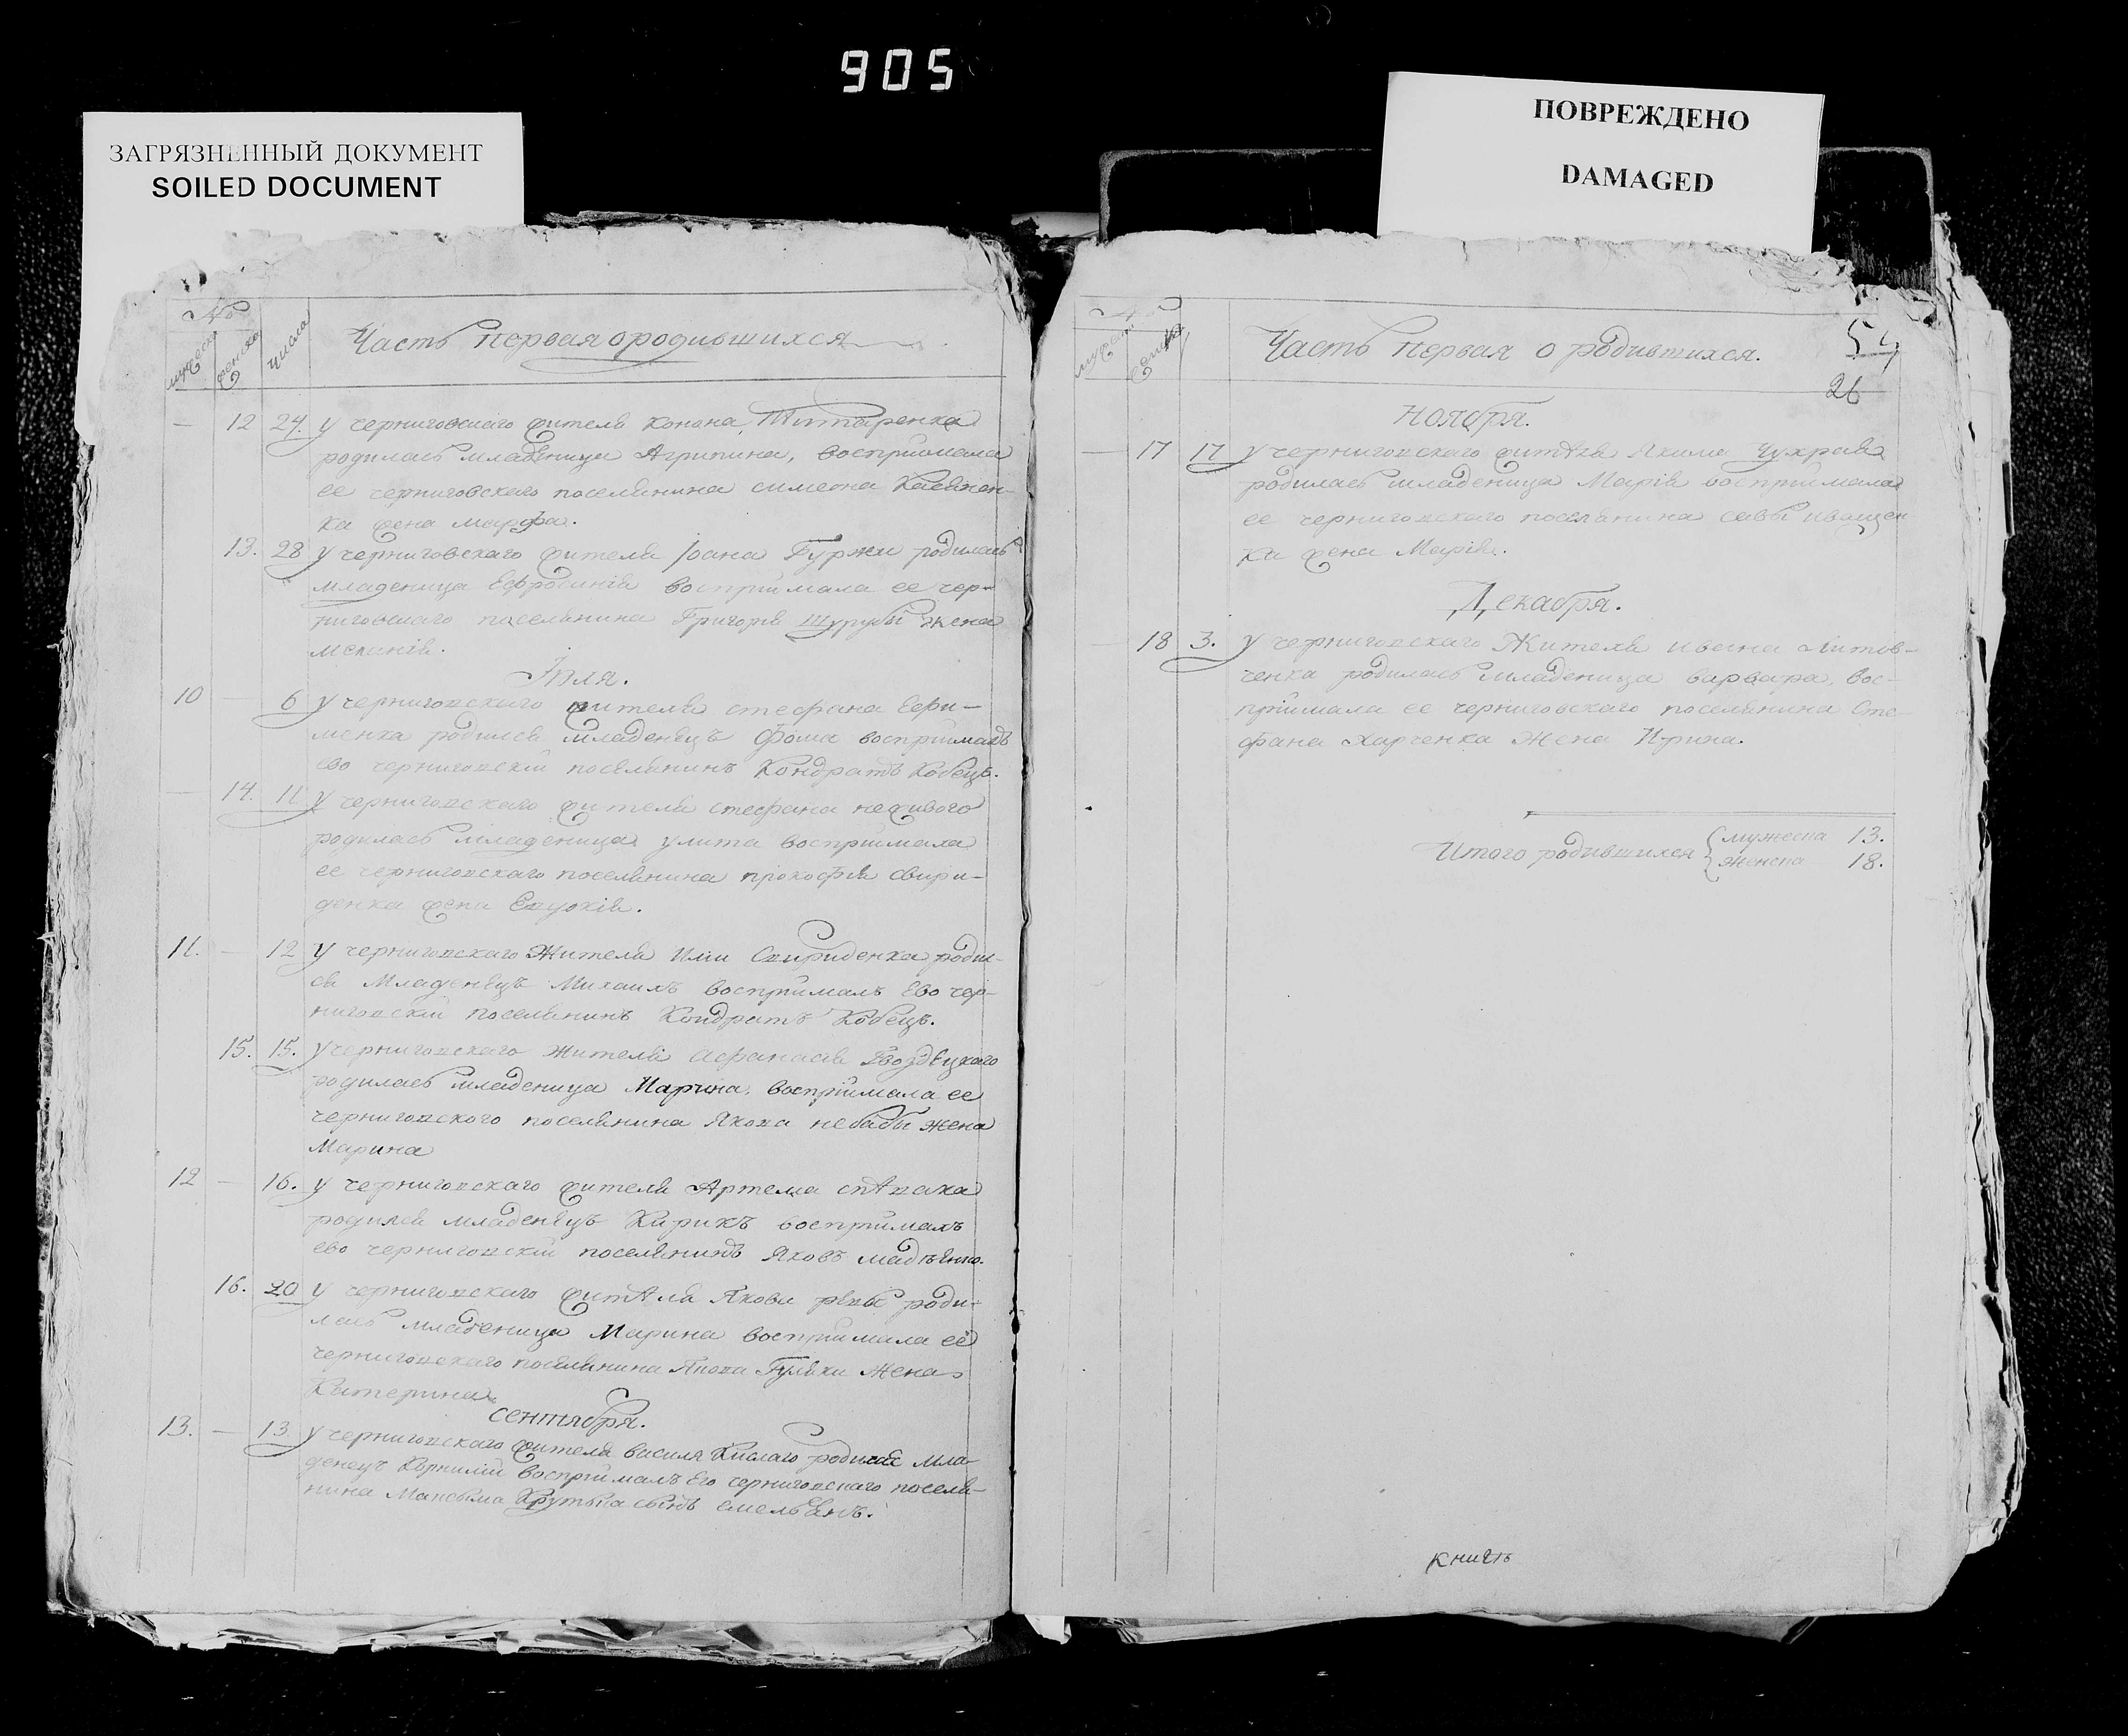 905
ЗАГРЯЗНЕННЫЙ ДОКУМЕНТ
SOILED DOCUMENT
ПОВРЕЖДЕНО
DAMAGED
№
мужеска женска числа Часть первая о родившихся
— 12 24. У черниговскаго жителя Конана Титаренка
родилась младеница Агрипина, восприимала
ее черниговского поселянина симеона
ка жена марфа.
13. 28 У черниговскаго жителя Іоана Гуржи родилась
младеница Ефросинія восприимала ее чер-
ниговскаго поселянина Григорія Шурубы жена
меланія.
Іюля.
10 — 6 У черниговскаго жителя стефана Ефи-
менка родился младенецъ Фома восприималъ
ево черниговскій поселянинъ Кондратъ Кобецъ.
— 14. 11 У черниговскаго жителя стефана неживого
родилась младеница улита восприимала
ее черниговскаго поселянина прокофія свири-
денка жена Евдокія.
11. — 12 У черниговскаго Жителя Иліи Свириденка родил-
ся Младенецъ Михаилъ восприималъ Ево чер-
ниговскій поселянинъ Кондратъ Кобецъ.
15. 15. У черниговскаго жителя афанасія Гвоздецкаго
родилась младеница Марина, восприимала ее
черниговского поселянина Якова небабы жена
Марина
12 — 16. У черниговскаго жителя Артема
родился младенецъ Кирикъ восприималъ
ево черниговскій поселянинъ Яковъ
16. 20 У черниговскаго жителя Якова репы роди-
лась младеница Марина восприимала её
черниговскаго поселянина Якова Гуляки Жена
Катерина.
сентября.
13. — 13 У черниговскаго жителя василя Кислаго родился мла-
денец Корнилій восприималъ Его черниговскаго поселя-
нина Максыма сынъ емельянъ.
№
мужеска женска Часть первая о родившихся.
26
Ноября.
— 17 17 У черниговскаго жителя Якима Чухрая
родилась младеница Марія восприимала
ее черниговского поселянина савы иващен
ка жена Марія.
Декабря.
— 18 3. У черниговскаго Жителя ивана Литов-
ченка родилась младеница варвара, вос-
приимала ее черниговского поселянина Сте-
фана Харченка жена Ирина.
Итого родившихся мужеска 13.
женска 18.